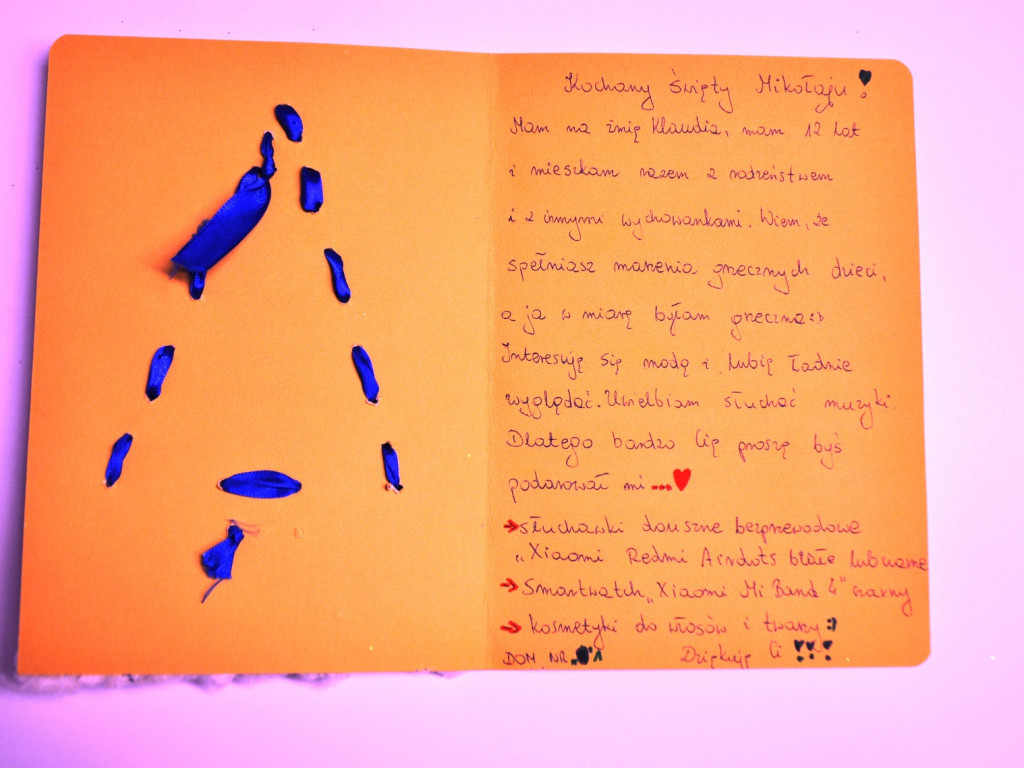 Kochany święty Mikołaju!
Mam na imię Klaudia, mam 12 lat
i mieszkam razem z rodzeństwem
i z innymi wychowankami. Wiem, że
spełniasz marzenia grzecznych dzieci,
a ja w miarę byłam grzeczna :)
Interesuję się modą i lubię ładnie
wyglądać. Uwielbiam słuchać muzyki.
Dlatego bardzo Cię proszę byś
podarował mi...
→ słuchawki douszne bezprzewodowe
"Xiaomi Redmi Airdots białe lub czarne
→ Smartwatch „Xiaomi Mi Band 4" czarny
→ kosmetyki do włosów i twarzy :)
DOM NR Dziękuję Ci !!!